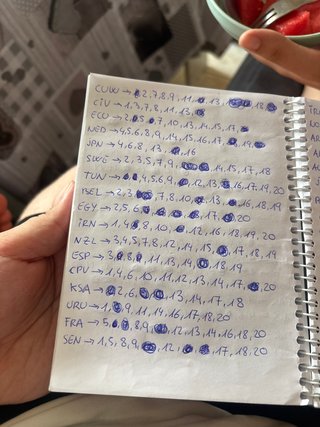 CUW → 2,7,8,9,11, 13, 18
CIV → 1,3,7,8,11,13,
ECU → 2, 7,10,13,14,15,17,
NED → 4,5,6,8,9,14,15,16,17, 19,
JPN → 4,6,8,13, 16
SWE → 2,3,5,7,9, 14,15,17,18
TUN → 4,5,6,9, 12,13, 16,17,19,20
BEL → 2,3, 7,8,10, 13, 16,18,19
EGY → 2,5,6, 17, 20
IRN → 1,4, 8,10, 12,16,18,19,20
NZL → 3,4,5,7,8,12,14,15, 17,18,19
ESP → 3, 8, 11,13,14, 18,19
CPV → 1,4,6,10,11,12,13,14,17, 20
KSA → 2,6, 13,14,17,18
URU → 1, 9,11,14,16,17,18,20
FRA → 5, 8,9, 12,13,14,16,18,20
SEN → 1,5,8,9, 12, 17,18,20